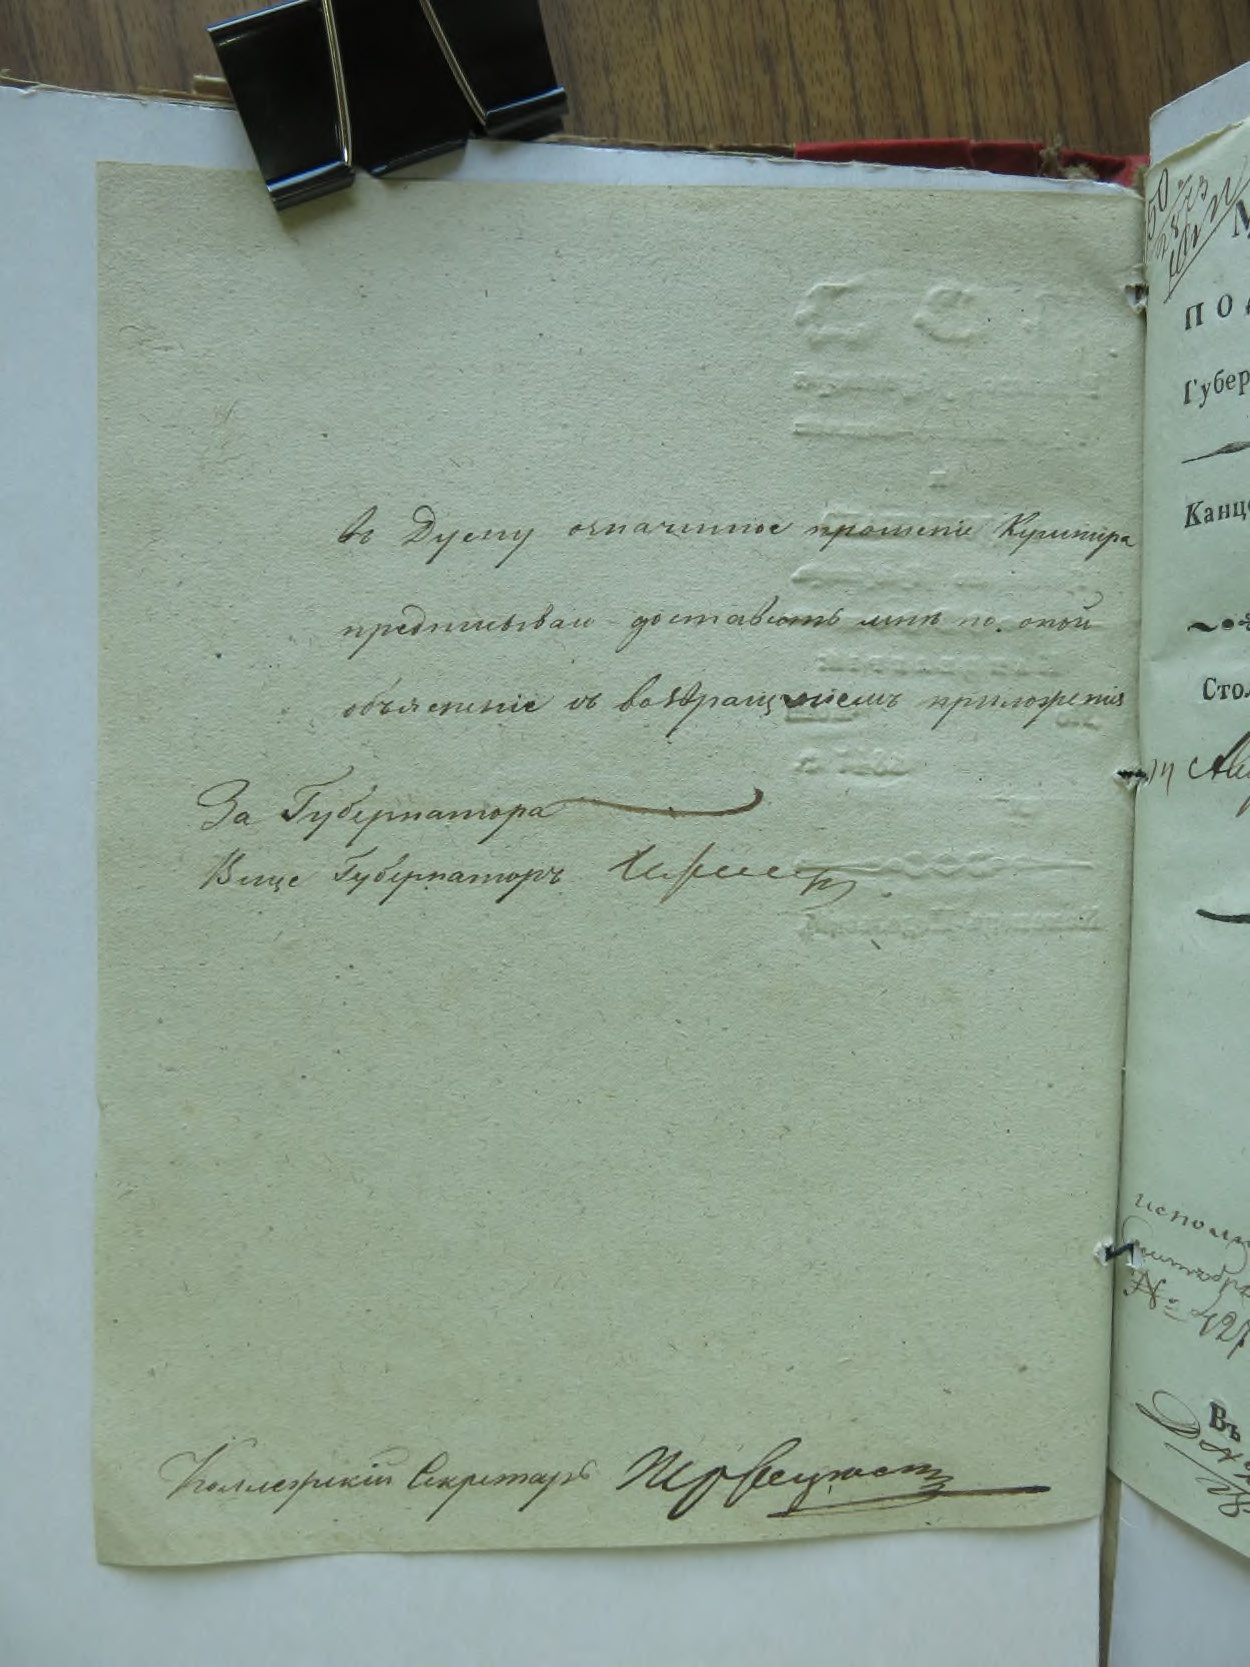 въ Думу означенное прошеніе Кушнира
предписываю доставить мнѣ по оной
объясненіе съ возвращеніемъ приложенія
За Губернатора
Вице Губернаторъ
Коллежскій Секретарь
ПО
Губер
Канце
Стол
исполн
№ 427
Въ